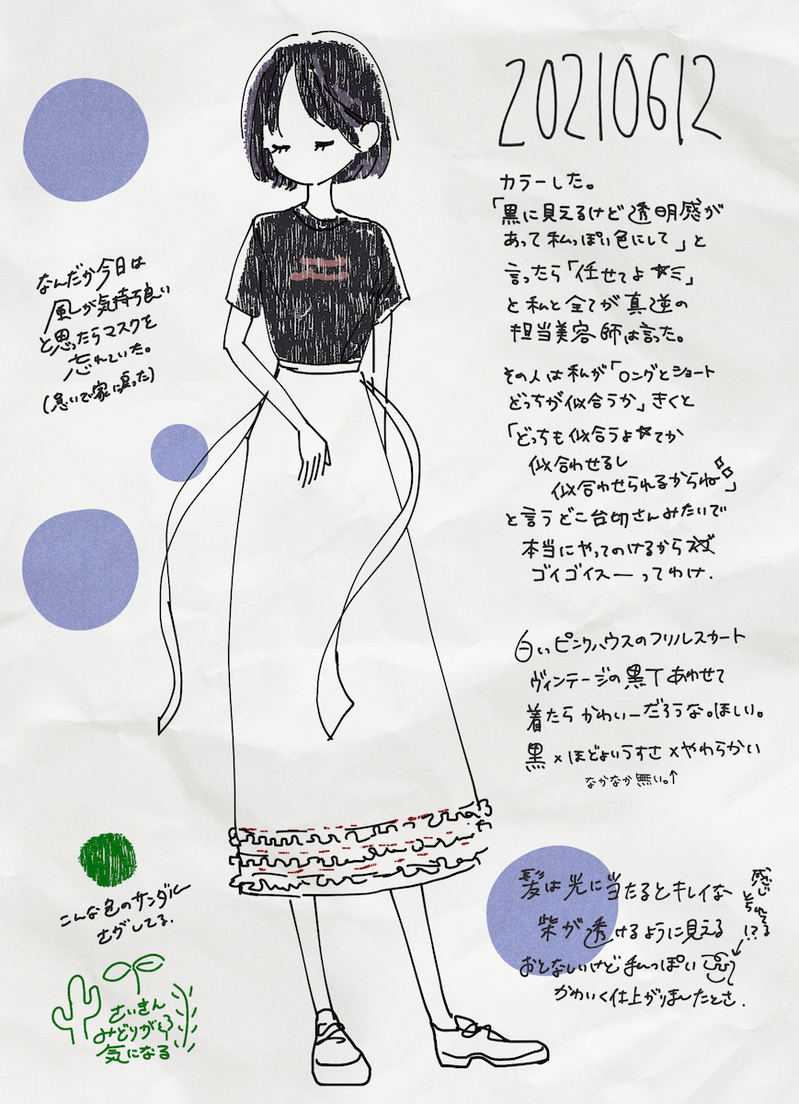 20210612
カラーした。
「黒に見えるけど透明感が
あって私っぽい色にして」と
言ったら「任せてよ☆ミ」
と私と全てが真逆の
担当美容師は言った。
その人は私が「ロングとショート
どっちが似合うか」きくと
「どっちも似合うよ☆てか
似合わせるし
似合わせられるからね」
と言うどこ台切さんみたいで
本当にやってのけるから
ゴイゴイスーってわけ.
なんだか今日は
風が気持ち良い
と思ったらマスクを
忘れていた。
(急いで家に戻った)
白いピンクハウスのフリルスカート
ヴィンテージの黒T あわせて
着たら かわいーだろうな。ほしい。
黒×ほどよいうすさ×やわらかい
なかなか無い。↑
こんな色のサンダル
さがしてる.
さいきん
みどりが
気になる
髪は光に当たるとキレイな
紫が透けるように見える
おとなしいけど私っぽい
かわいく仕上がりましたとさ.
感じ
とられてる
!?